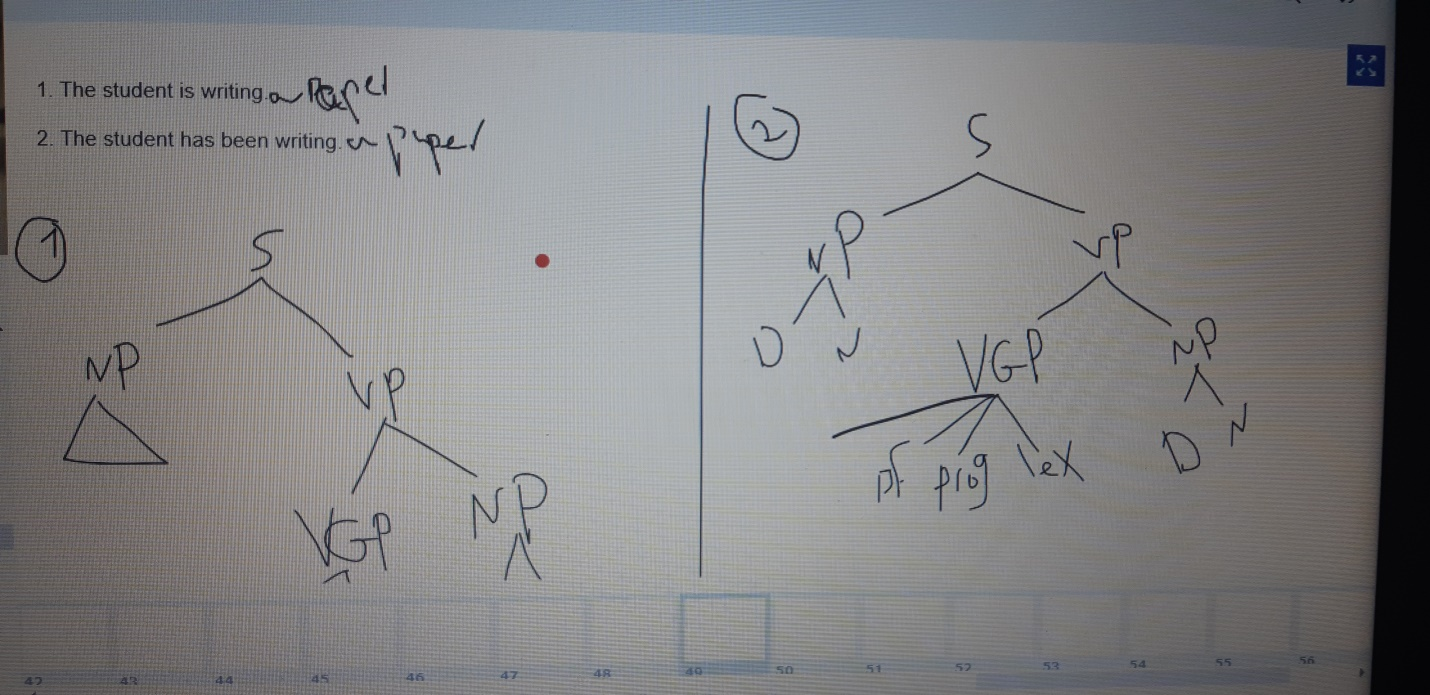 1. The student is writing. a Paper
2. The student has been writing. a paper
1
S
NP
VP
VGP
NP
2
S
NP
VP
D
N
VGP
NP
pf
prog
lex
D
N
42
43
44
45
46
47
48
49
50
51
52
53
54
55
56